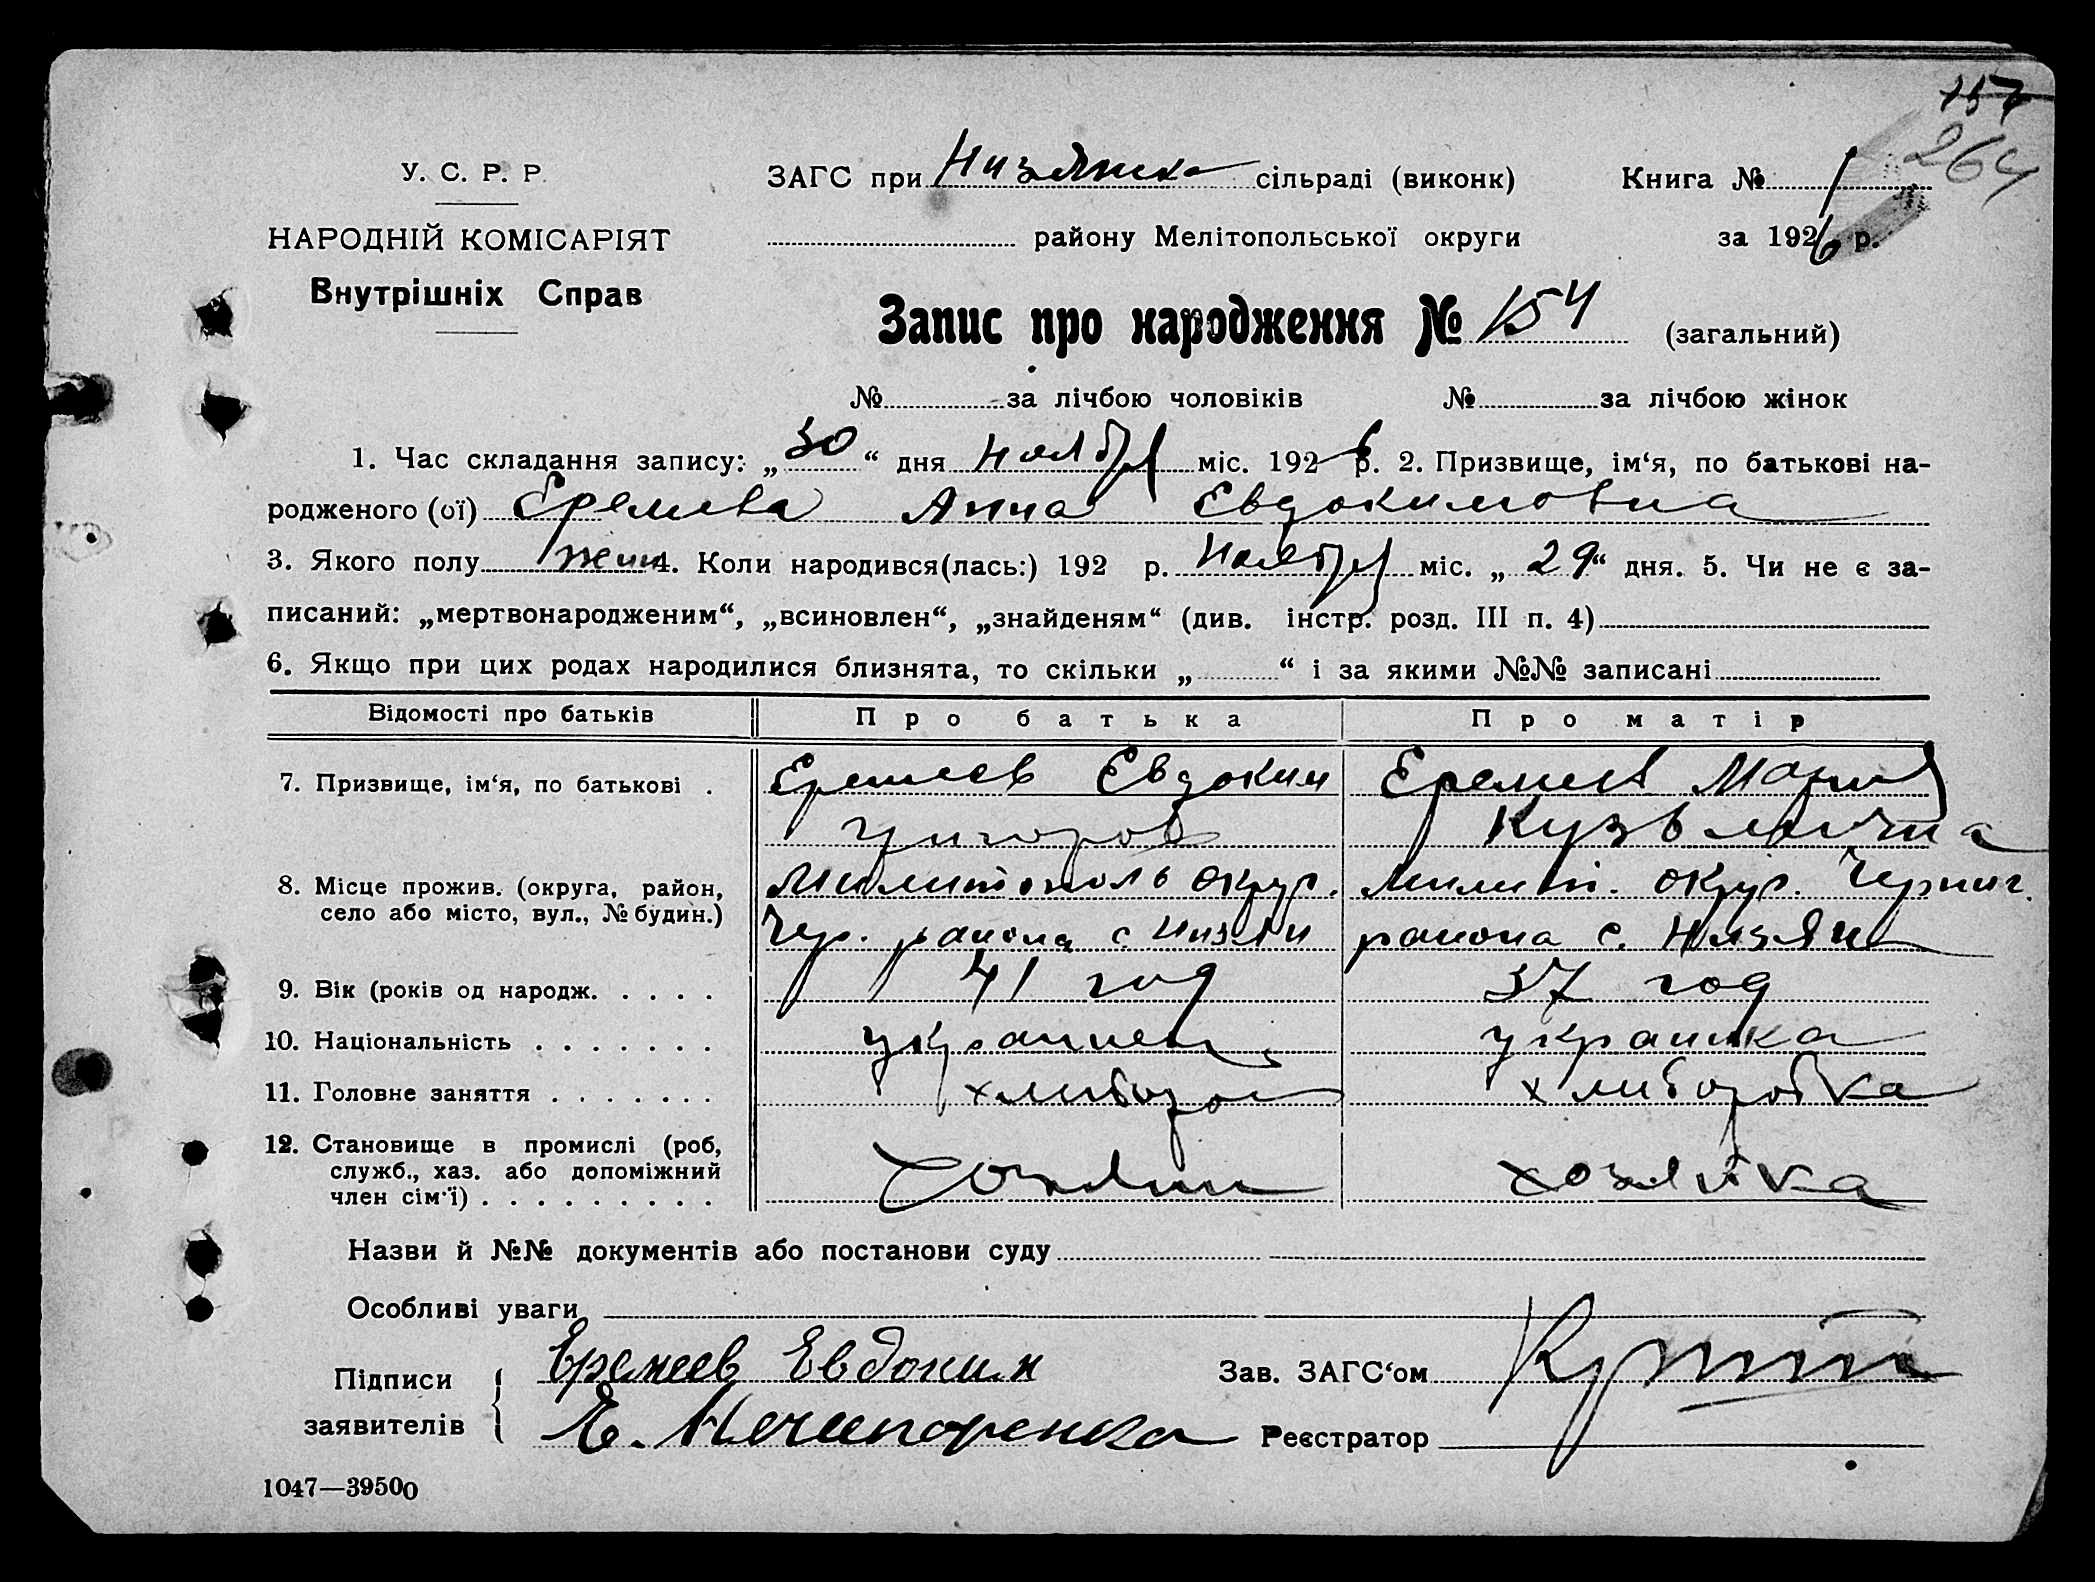 157
264
У. С. Р. Р.
НАРОДНІЙ КОМІСАРІЯТ
Внутрішніх Справ
ЗАГС при Низянска сільраді (виконк)
Книга № 1
району Мелітопольської округи
за 1926 р.
Запис про народження № 154 (загальний)
№ за лічбою чоловіків № за лічбою жінок
1. Час складання запису: „30“ дня Ноября міс. 1926 р. 2. Призвище, ім‘я, по батькові на-
родженого (ої) Еремеева Анна Евдокимовна
3. Якого полу жен 4. Коли народився(лась:) 192 р. Ноября міс. „29“ дня. 5. Чи не є за-
писаний: „мертвонародженим“, „всиновлен“, „знайденям“ (див. інстр. розд. III п. 4)
6. Якщо при цих родах народилися близнята, то скільки „ “ і за якими №№ записані
Відомості про батьків Про батька Про матір
7. Призвище, ім‘я, по батькові . Еремеев Евдоким Еремеев Мария
Григоров Кузьминична
8. Місце прожив. (округа, район, село або місто, вул., № будин.) Милитополь округ. Милит. округ. Черниг.
Чер. района с. Низяни района с. Низяни
9. Вік (років од народж. . . . . 41 год 37 год
10. Національність . . . . . . . украинец украинка
11. Головне заняття . . . . . . . хлибороб хлиборобка
12. Становище в промислі (роб, служб., хаз. або допоміжний член сім‘ї) . . . . . . . . . Хозяин хозяйка
Назви й №№ документів або постанови суду
Особливі уваги
Підписи заявителів { Еремеев Евдоким
Е. Нечипоренко
Зав. ЗАГС‘ом
Реєстратор
1047—39500